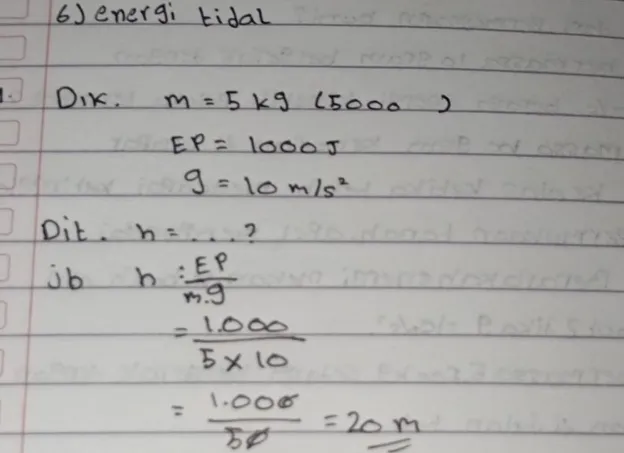 6) energi tidal
1. Dik. m = 5 kg (5000 )
EP = 1000 J
g = 10 m/s²
Dit. h = . . . ?
jb h : EP
m.g
= 1.000
5 x 10
= 1.000
50
= 20 m